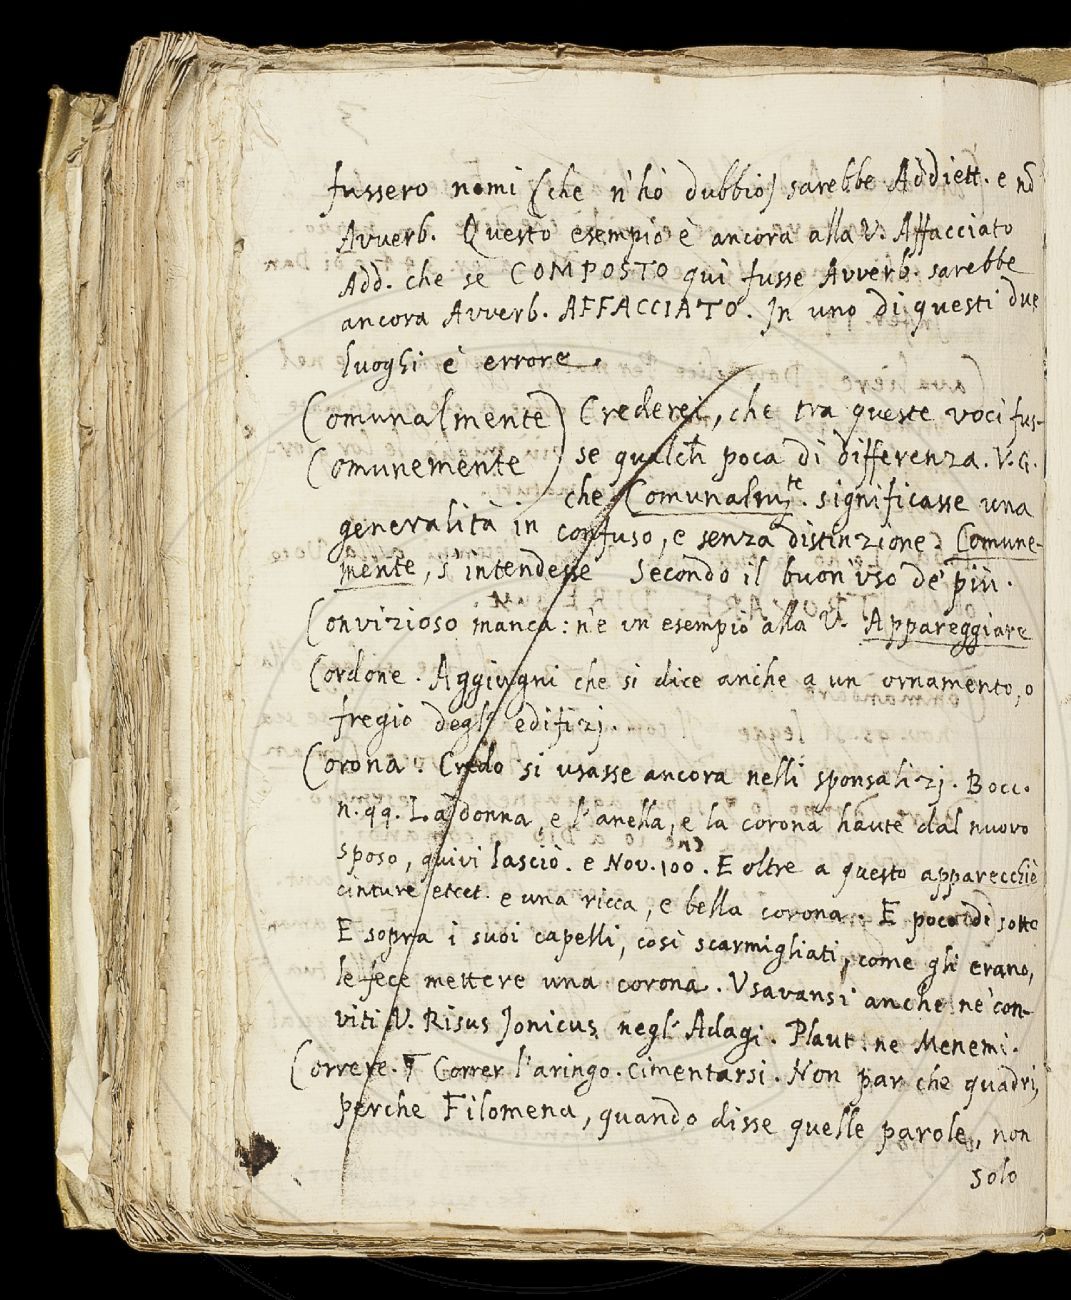 fussero nomi (che n'hò dubbio) sarebbe Addiett. e nō
Avverb. Questo esempio è ancora alla V. Affacciato
Add. che se COMPOSTO quì fusse Avverb. sarebbe
ancora Avverb. AFFACCIATO. In uno di questi due
luoghi è errore.
Comunalmente) Crederei, che tra queste voci fus-
Comunemente) se qualch̄ poca di differenza. V.G.
che Comunalmte. significasse una
generalità in confuso, e senza distinzione. Comune-
mente, s'intendesse secondo il buon'uso de' più.
Convizioso manca: n'è un esempio alla V. Appareggiare
Cordone. Aggiugni che si dice anche a un ornamento, o
fregio degl' edifizj.
Corona. Credo si usasse ancora nelli sponsalizj. Bocc.
n. 99. La donna, e l'anella, e la corona haute dal nuovo
sposo, quivi lasciò. e Nov. 100. E oltre a questo apparecchiò
cinture etcet. e una ricca, e bella corona. E poco di sotto
E sopra i suoi capelli, così scarmigliati, come gli erano,
le fece mettere una corona. Usavansi anche ne' con-
viti V. Risus Jonicus negl' Adagi. Plaut. ne Menemi.
Correre. ¶ Correr l'aringo. cimentarsi. Non par che quadri,
perche Filomena, quando disse quelle parole, non
solo